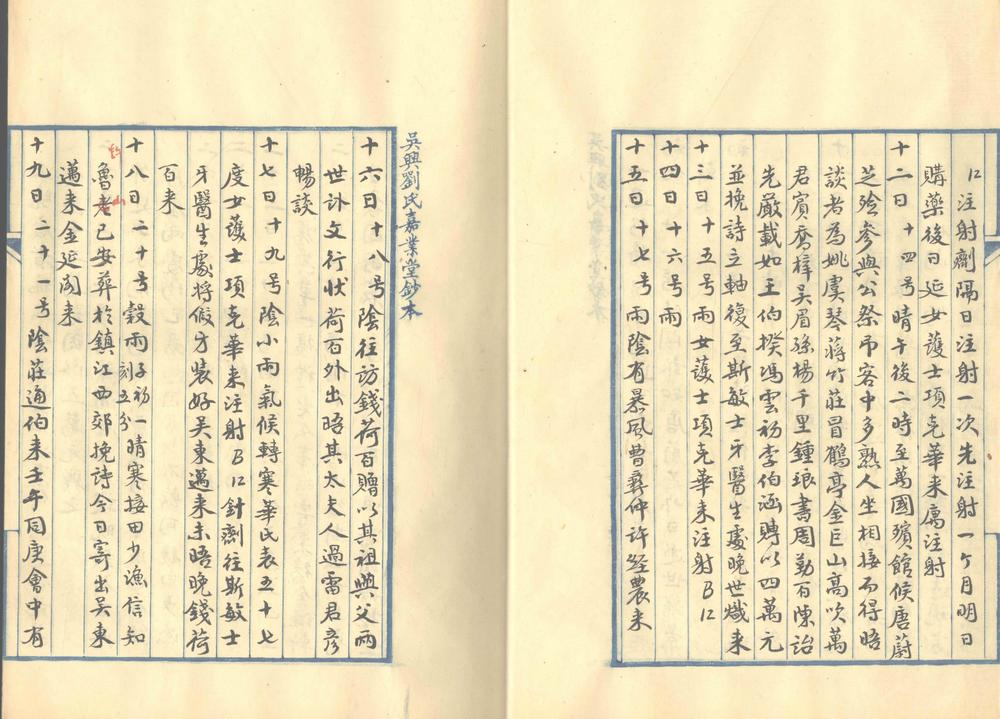 12注射劑隔日注射一次先注射一ケ月明日
購藥後日延女護士項克華来寓注射
十二日 十四号晴午後二時至萬國殯館候唐蔚
芝殮参與公祭吊客中多熟人坐相接而得晤
談者為姚虞琴蔣竹莊冒鶴亭金巨山高吹萬
君賓喬梓吴眉孫楊千里鍾琅書周勤百陳詒
先嚴載如王伯揆馮雲初李伯涵賻以四萬元
並挽詩立軸復至斯敏士牙醫生處晚世熾来
十三日十五号雨女護士項克華来注射B12
十四日十六号雨
十五日 十七号雨陰有暴風曹彝仲許经農来
吳興劉氏嘉業堂鈔本
十六日十八号陰往訪錢荷百贈以其祖與父兩
世訃文行狀荷百外出晤其太夫人過雷君彦
暢談
十七日十九号陰小雨氣候轉寒華氏表五十七
度女護士項克華来注射B12針劑往斯敏士
牙醫生處將假牙裝好吴東邁来未晤晚錢荷
百来
十八日 二十号穀雨子初一刻五分晴寒接田少漁信知
魯老已安葬於鎮江西郊挽詩今日寄出吴東
山
邁来金延闓来
十九日 二十一号陰莊通伯来壬午同庚會中有